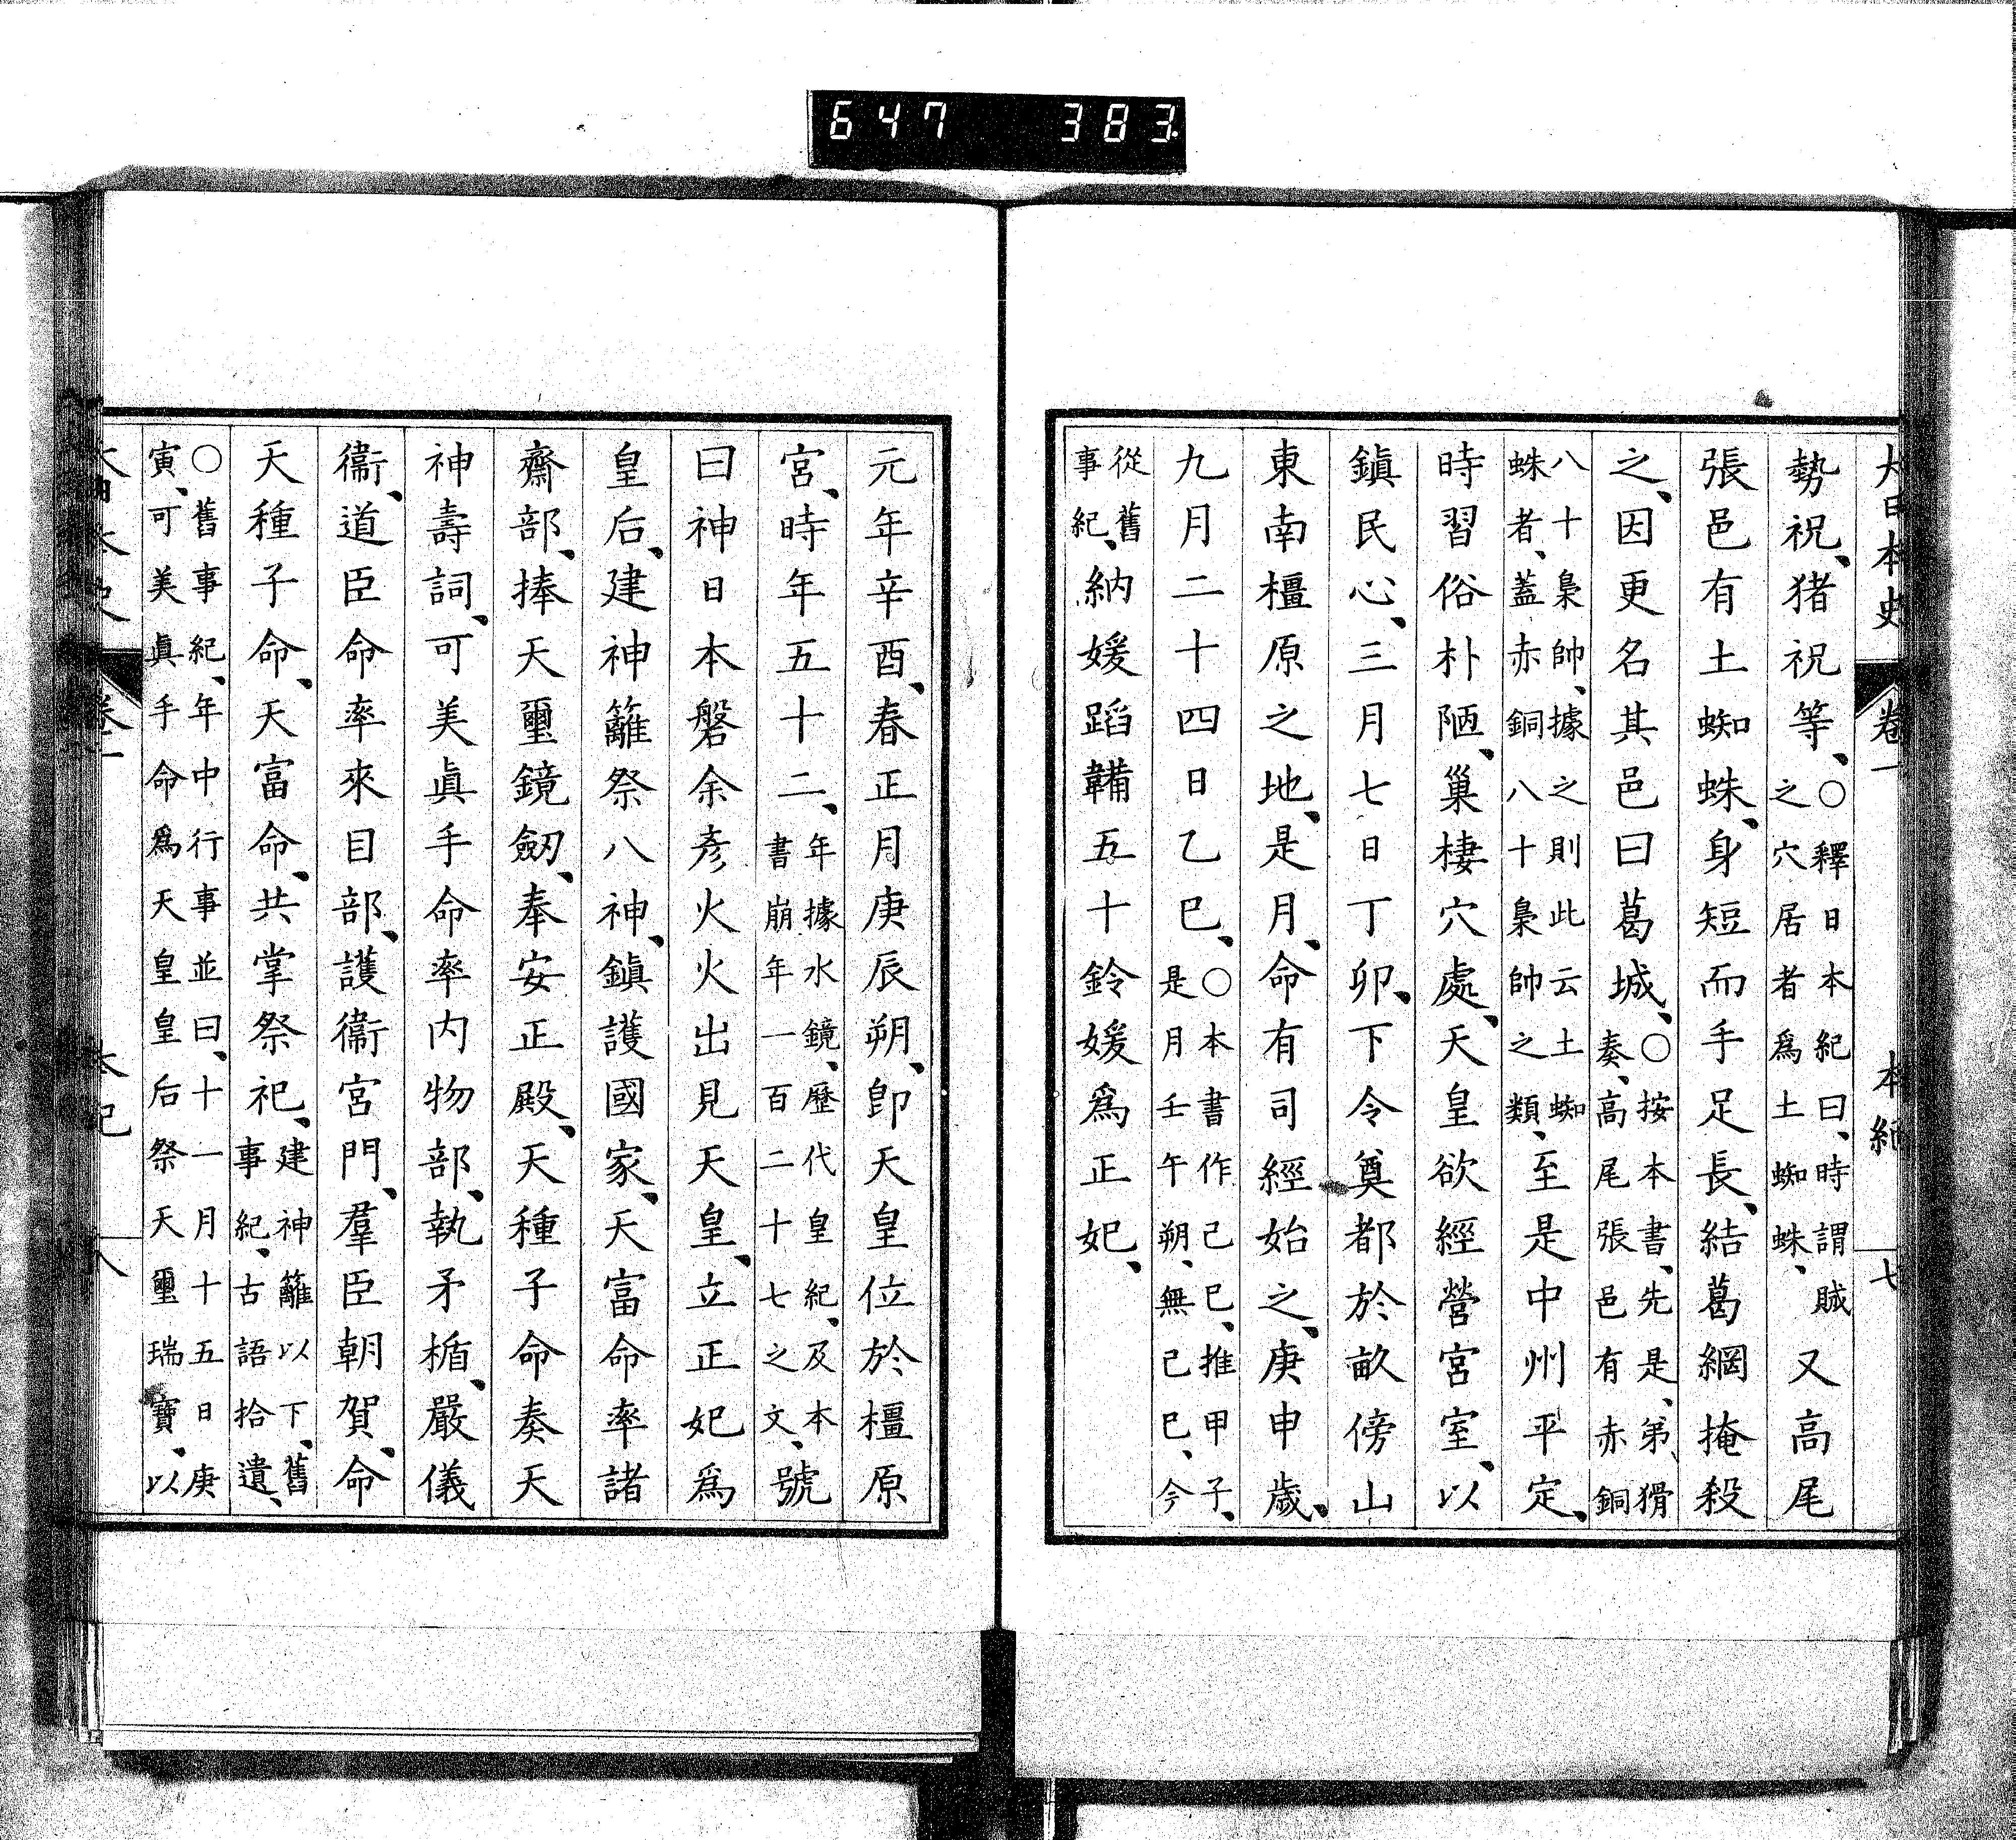 647 383
大日本史 卷一 本紀 七
勢祝、猪祝等、○釋日本紀曰、時謂賊之穴居者爲土蜘蛛、又高尾
張邑有土蜘蛛、身短而手足長、結葛網掩殺
之、因更名其邑曰葛城、○按本書、先是、弟猾奏、高尾張邑有赤銅
八十梟帥、據之則此云土蜘蛛者、蓋赤銅八十梟帥之類、至是中州平定、
時習俗朴陋、巢棲穴處、天皇欲經營宮室、以
鎭民心、三月七日丁卯、下令奠都於畝傍山
東南橿原之地、是月、命有司經始之、庚申歲、
九月二十四日乙巳、○本書作己巳、推甲子、是月壬午朔、無己巳、今
從舊事紀、納媛蹈鞴五十鈴媛爲正妃、
元年辛酉、春正月庚辰朔、卽天皇位於橿原
宮、時年五十二、年據水鏡、歷代皇紀、及本書崩年一百二十七之文、號
曰神日本磐余彥火火出見天皇、立正妃爲
皇后、建神籬祭八神、鎭護國家、天富命率諸
齋部、捧天璽鏡劒、奉安正殿、天種子命奏天
神壽詞、可美眞手命率内物部、執矛楯、嚴儀
衞、道臣命率來目部、護衞宮門、羣臣朝賀、命
天種子命、天富命、共掌祭祀、建神籬以下、舊事紀、古語拾遺、
○舊事紀、年中行事並曰、十一月十五日庚寅、可美眞手命爲天皇皇后祭天璽瑞寶、以
卷一 本紀 八